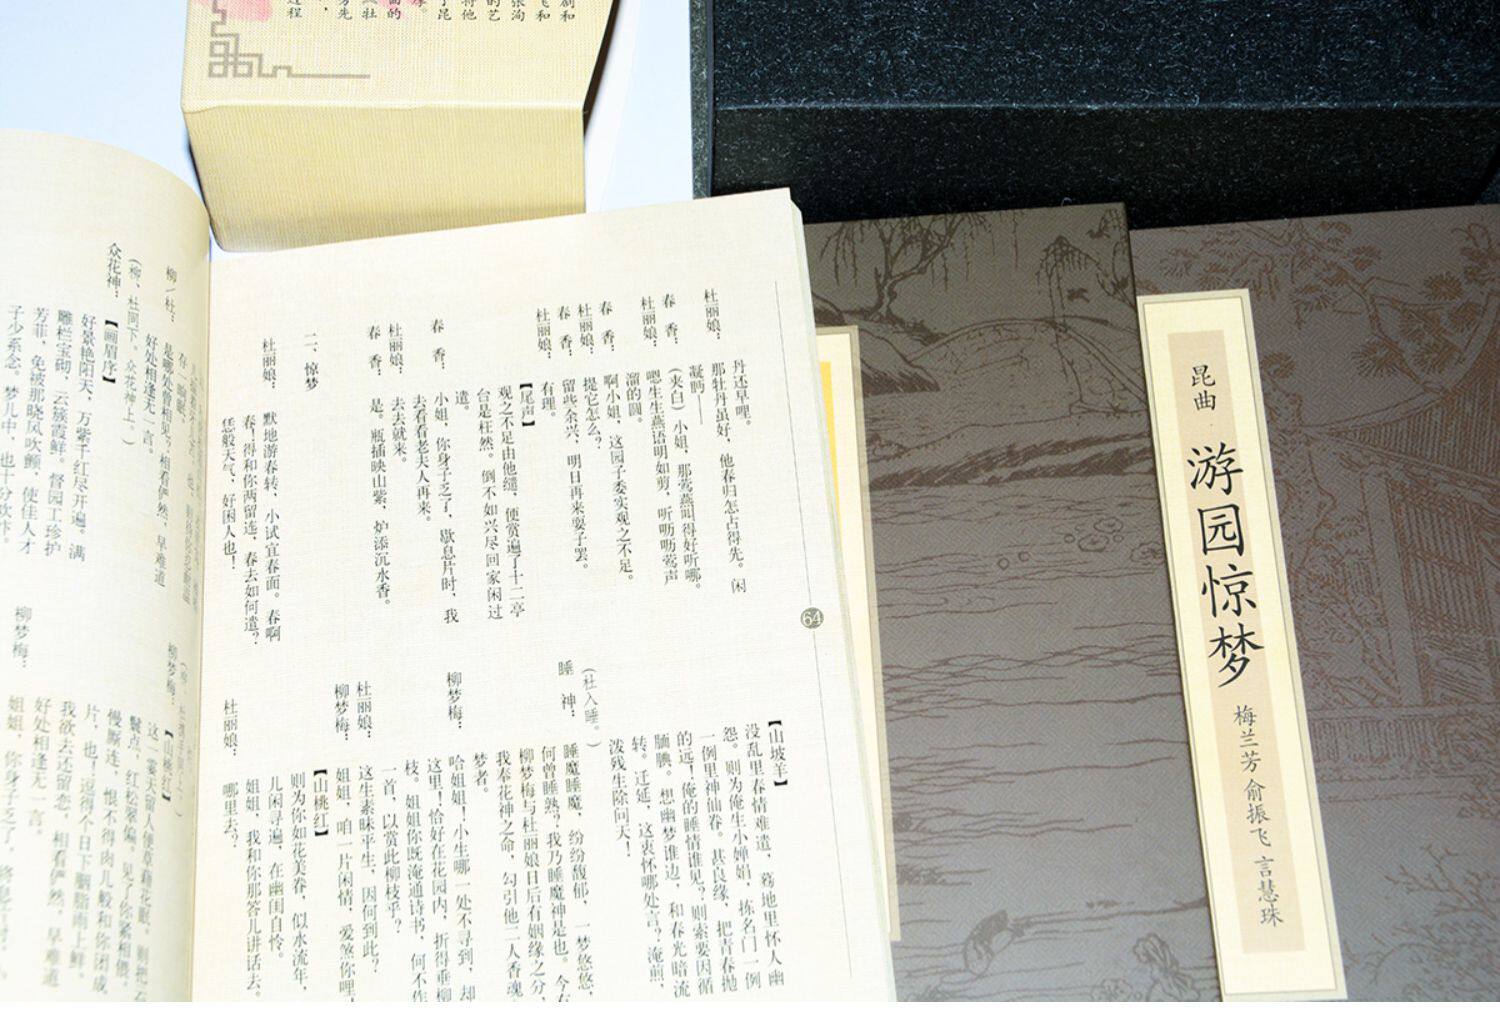 昆曲
游园惊梦
梅兰芳 俞振飞 言慧珠
64
丹还早哩。
杜丽娘：那牡丹虽好，他春归怎占得先。闲
凝眄——
春 香：（夹白）小姐，那莺燕叫得好听哪。
杜丽娘：嗯生生燕语明如剪，听呖呖莺声
溜的圆。
春 香：啊小姐，这园子委实观之不足。
杜丽娘：提它怎么？
春 香：留些余兴，明日再来耍子罢。
杜丽娘：有理。
【尾声】
观之不足由他缱，便赏遍了十二亭
台是枉然。倒不如兴尽回家闲过
遣。
春 香：小姐，你身子乏了，歇息片时，我
去看看老夫人再来。
杜丽娘：去去就来。
春 香：是。瓶插映山紫，炉添沉水香。
二、惊梦
杜丽娘：默地游春转，小试宜春面。春啊
春！得和你两留连，春去如何遣？
恁般天气，好困人也！
【山坡羊】
没乱里春情难遣，蓦地里怀人幽
怨。则为俺生小婵娟，拣名门一例
一例里神仙眷。甚良缘，把青春抛
的远！俺的睡情谁见？则索要因循
腼腆。想幽梦谁边，和春光暗流
转。迁延，这衷怀哪处言？淹煎，
泼残生除问天！
（杜入睡。）
睡 神：睡魔睡魔，纷纷馥郁，一梦悠悠，
何曾睡熟？我乃睡魔神是也。今
柳梦梅与杜丽娘日后有姻缘之分，
我奉花神之命，勾引他二人香魂
梦者。
柳梦梅：哈姐姐！小生哪一处不寻到，却
这里！恰好在花园内，折得垂柳
枝。姐姐你既淹通诗书，何不作
一首，以赏此柳枝乎？
杜丽娘：这生素昧平生，因何到此？
柳梦梅：姐姐，咱一片闲情，爱煞你哩
【山桃红】
则为你如花美眷，似水流年，
儿闲寻遍，在幽闺自怜。
姐姐，我和你那答儿讲话去。
杜丽娘：哪里去？
柳/杜：是哪处曾相见？相看俨然，早难道
好处相逢无一言。
（柳、杜同下。众花神上。）
众花神：【画眉序】
好景艳阳天，万紫千红尽开遍。满
雕栏宝砌，云簇霞鲜。督园工珍护
芳菲，免被那晓风吹颤，使佳人才
子少系念。梦儿中，也十分欢忭。
柳梦梅：【山桃红】
这一霎天留人便草藉花眠，则把
鬓点，红松翠偏。见了你紧相偎，
慢厮连，恨不得肉儿般和你团成
片，也！逗得个日下胭脂雨上鲜。
柳梦梅：我欲去还留恋，相看俨然，早难道
好处相逢无一言。
姐姐，你身子乏了，将息